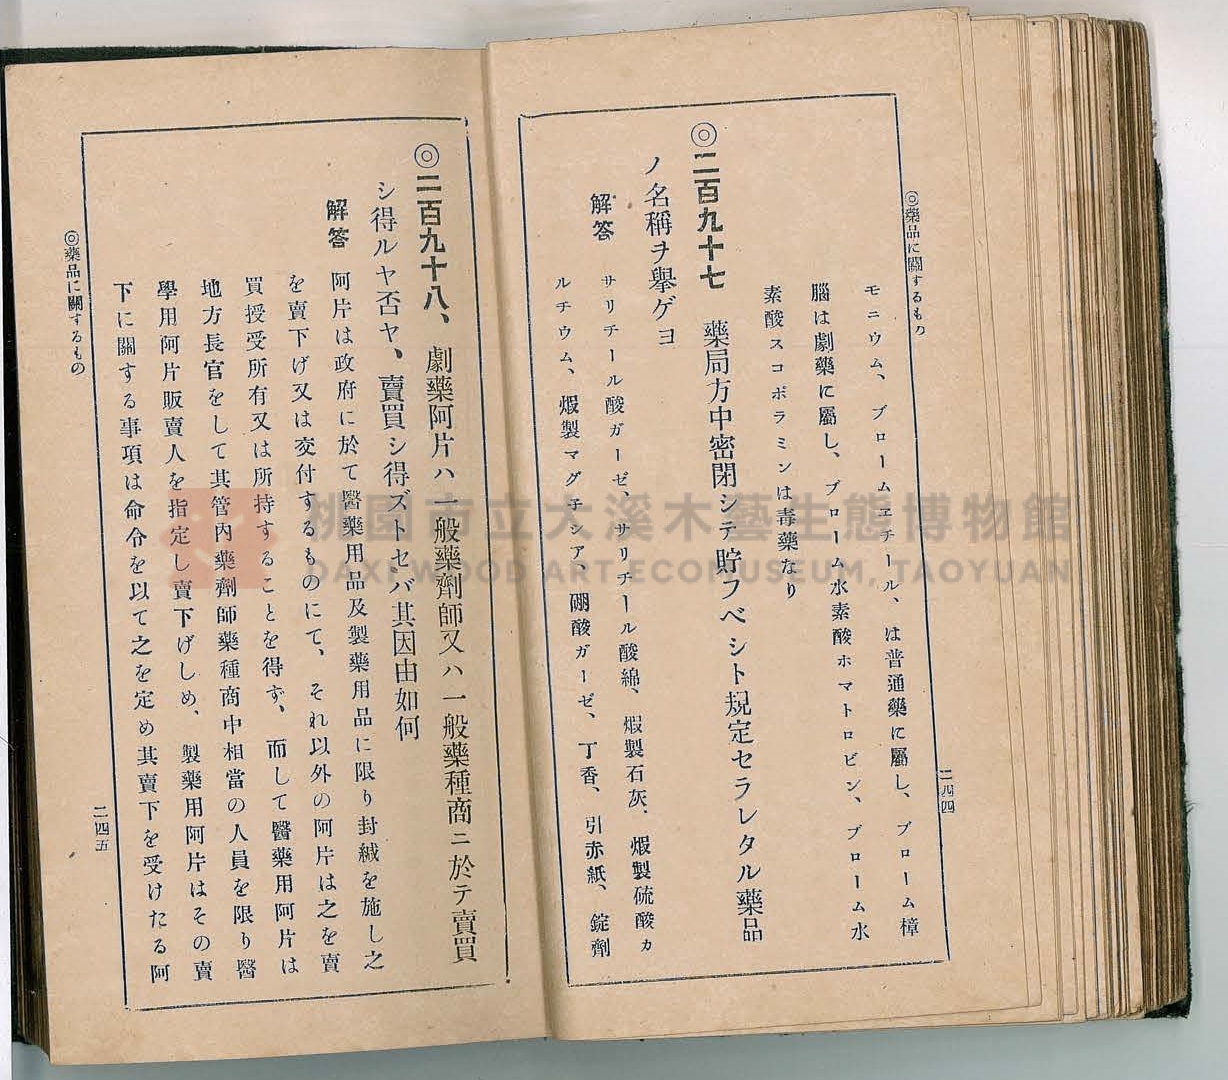 ◎藥品に關するもの
モニウム、ブロームエチール、は普通藥に屬し、ブローム樟
腦は劇藥に屬し、ブローム水素酸ホマトロピン、ブローム水
素酸スコポラミンは毒藥なり
◎二百九十七 藥局方中密閉シテ貯フベシト規定セラレタル藥品
ノ名稱ヲ擧ゲヨ
解答 サリチール酸ガーゼ、サリチール酸綿、煆製石灰、煆製硫酸カ
ルチウム、煆製マグ子シア、硼酸ガーゼ、丁香、引赤紙、錠劑
二四四
◎二百九十八、劇藥阿片ハ一般藥劑師又ハ一般藥種商ニ於テ賣買
シ得ルヤ否ヤ、賣買シ得ズトセバ其因由如何
解答 阿片は政府に於て醫藥用品及製藥用品に限り封緘を施し之
を賣下げ又は交付するものにて、それ以外の阿片は之を賣
買授受所有又は所持することを得ず、而して醫藥用阿片は
地方長官をして其管內藥劑師藥種商中相當の人員を限り醫
學用阿片販賣人を指定し賣下げしめ、製藥用阿片はその賣
下に關する事項は命令を以て之を定め其賣下を受けたる阿
◎藥品に關するもの
二四五
桃園市立大溪木藝生態博物館
DAXI WOOD ART ECOMUSEUM, TAOYUAN